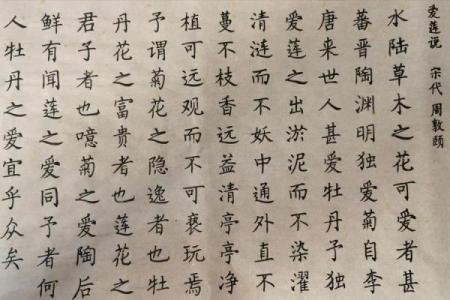 爱莲说 宋代 周敦颐
水陆草木之花可爱者甚
蕃晋陶渊明独爱菊自李
唐来世人甚爱牡丹予独
爱莲之出淤泥而不染濯
清涟而不妖中通外直不
蔓不枝香远益清亭亭净
植可远观而不可亵玩焉
予谓菊花之隐逸者也牡
丹花之富贵者也莲花之
君子者也噫菊之爱陶后
鲜有闻莲之爱同予者何
人牡丹之爱宜乎众矣